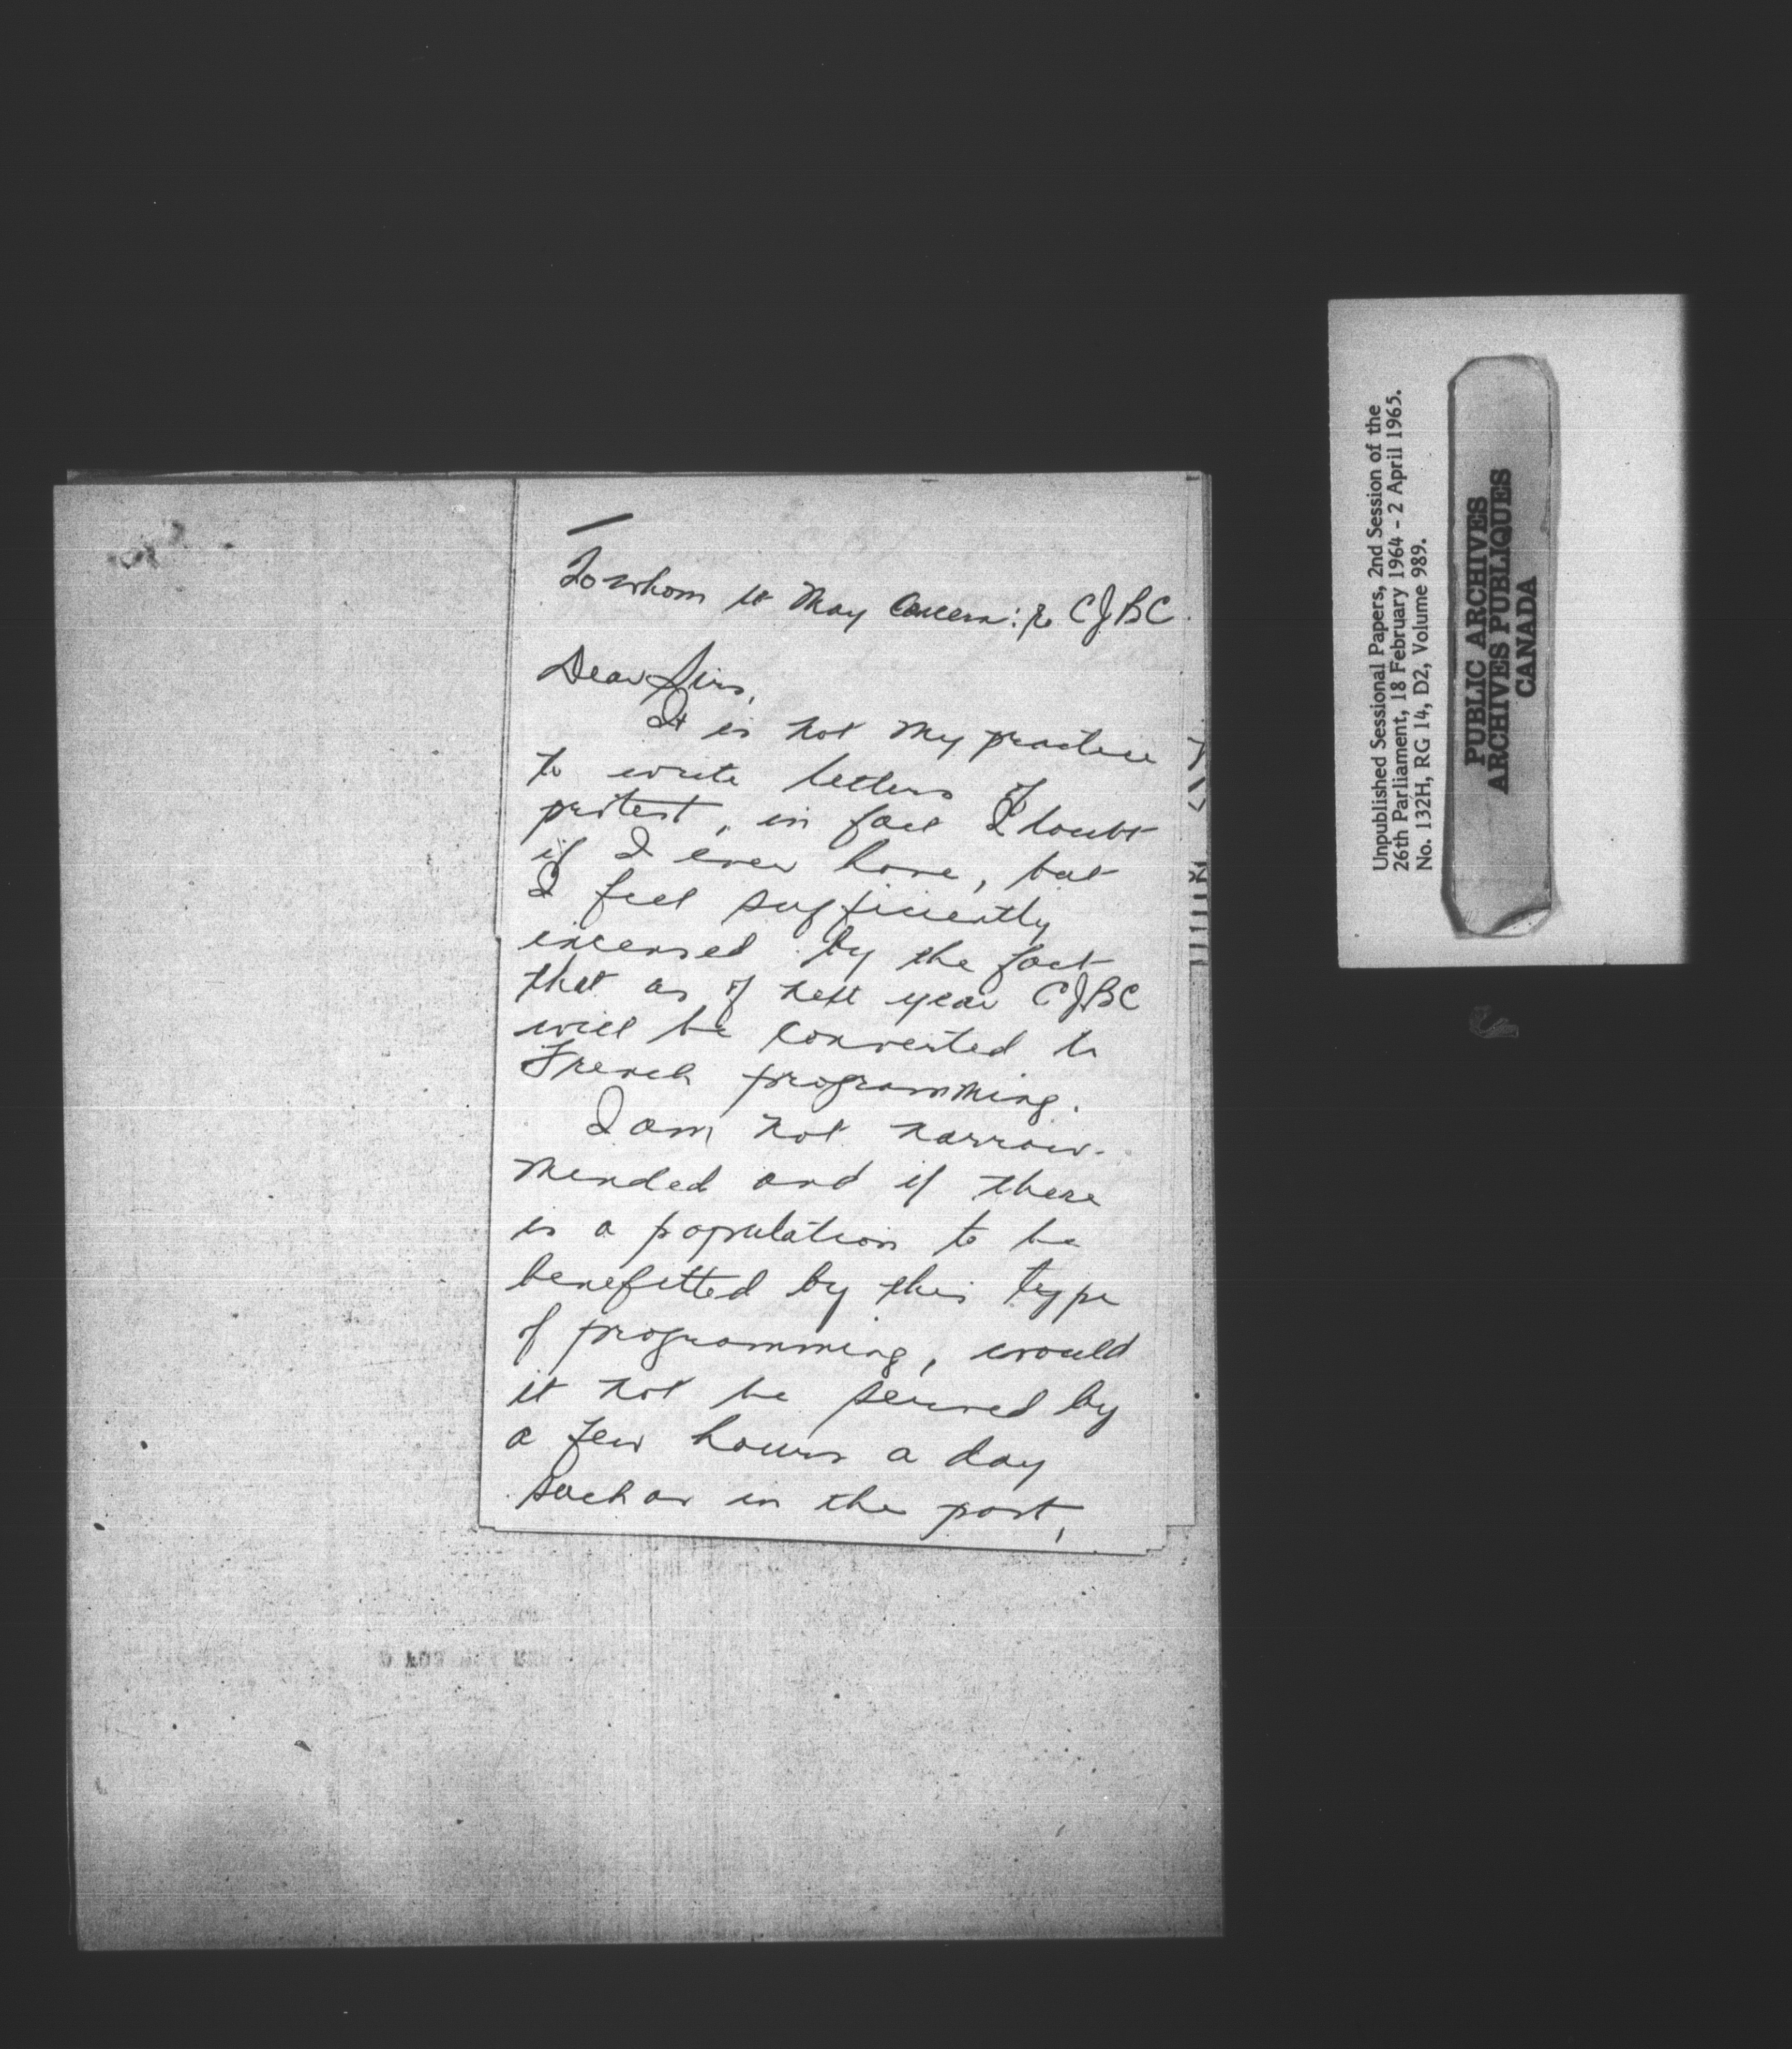 To whom it May Concern: re CJBC.
Dear Sirs,
It is not my practice
to write letters of
protest, in fact I doubt
if I ever have, but
I feel sufficiently
incensed by the fact
that as of next year CJBC
will be converted to
French programming.
I am not narrow-
minded and if there
is a population to be
benefitted by this type
of programming, would
it not be served by
a few hours a day
such as in the past,
Unpublished Sessional Papers, 2nd Session of the
26th Parliament, 18 February 1964 - 2 April 1965.
No. 132H, RG 14, D2, Volume 989.
PUBLIC ARCHIVES
ARCHIVES PUBLIQUES
CANADA